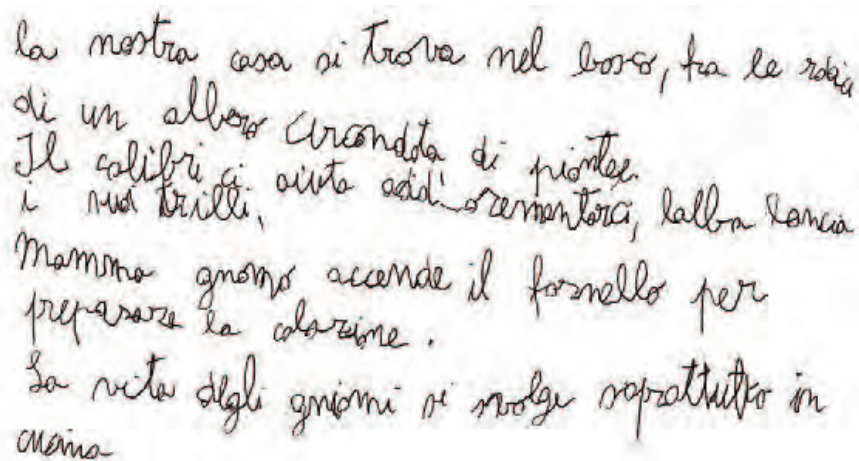 la nostra casa si trova nel bosco, fra le
di un albero circondata di piante.
Il colibri ci aiuta add'orementarci, lalba lancia
i suoi trilli,
Mamma gnomo accende il fornello per
preparare la colazione.
La vita degli gniomi si svolge soprattutto in
cucina